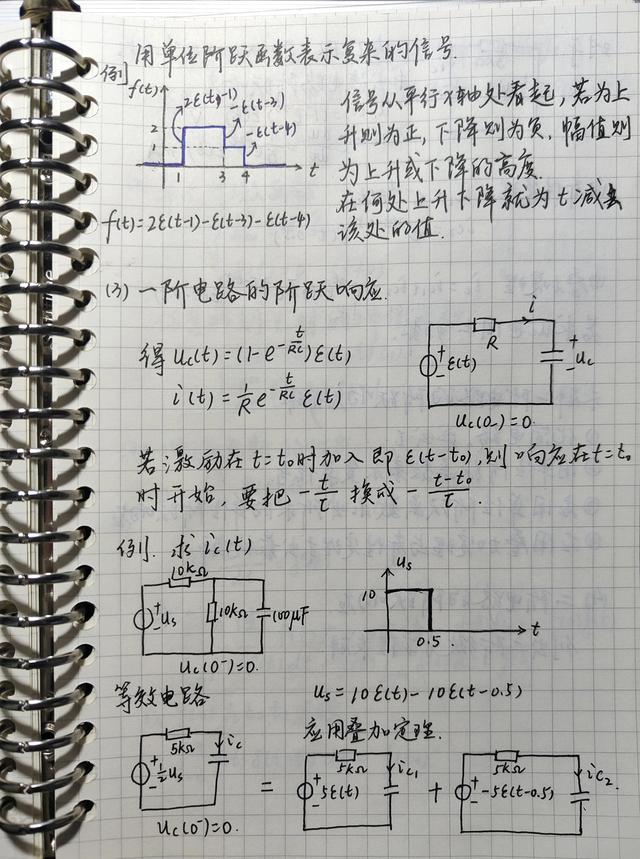 用单位阶跃函数表示复杂的信号.
例
f(t)
2ε(t-1)
-ε(t-3)
-ε(t-4)
2
1
1 3 4 t
信号从平行x轴处看起,若为上
升则为正,下降则为负,幅值则
为上升或下降的高度.
在何处上升下降就为t减去
该处的值.
f(t)=2ε(t-1)-ε(t-3)-ε(t-4)
(3) 一阶电路的阶跃响应.
得 uc(t)=(1-e^{-t/RC})ε(t)
i(t)=1/R e^{-t/RC} ε(t)
i
R
+ ε(t) -
+ uc -
uc(0-)=0.
若激励在t=t0时加入即 ε(t-t0),则响应在t=t0
时开始,要把 -t/τ 换成 -(t-t0)/τ.
例. 求ic(t)
10kΩ
+ us -
10kΩ
100μF
uc(0-)=0.
us
10
0.5 t
等效电路
us=10ε(t)-10ε(t-0.5)
应用叠加定理.
5kΩ ic
+ 1/2us -
uc(0-)=0.
=
5kΩ ic1
+ 5ε(t) -
+
5kΩ ic2
+ -5ε(t-0.5) -